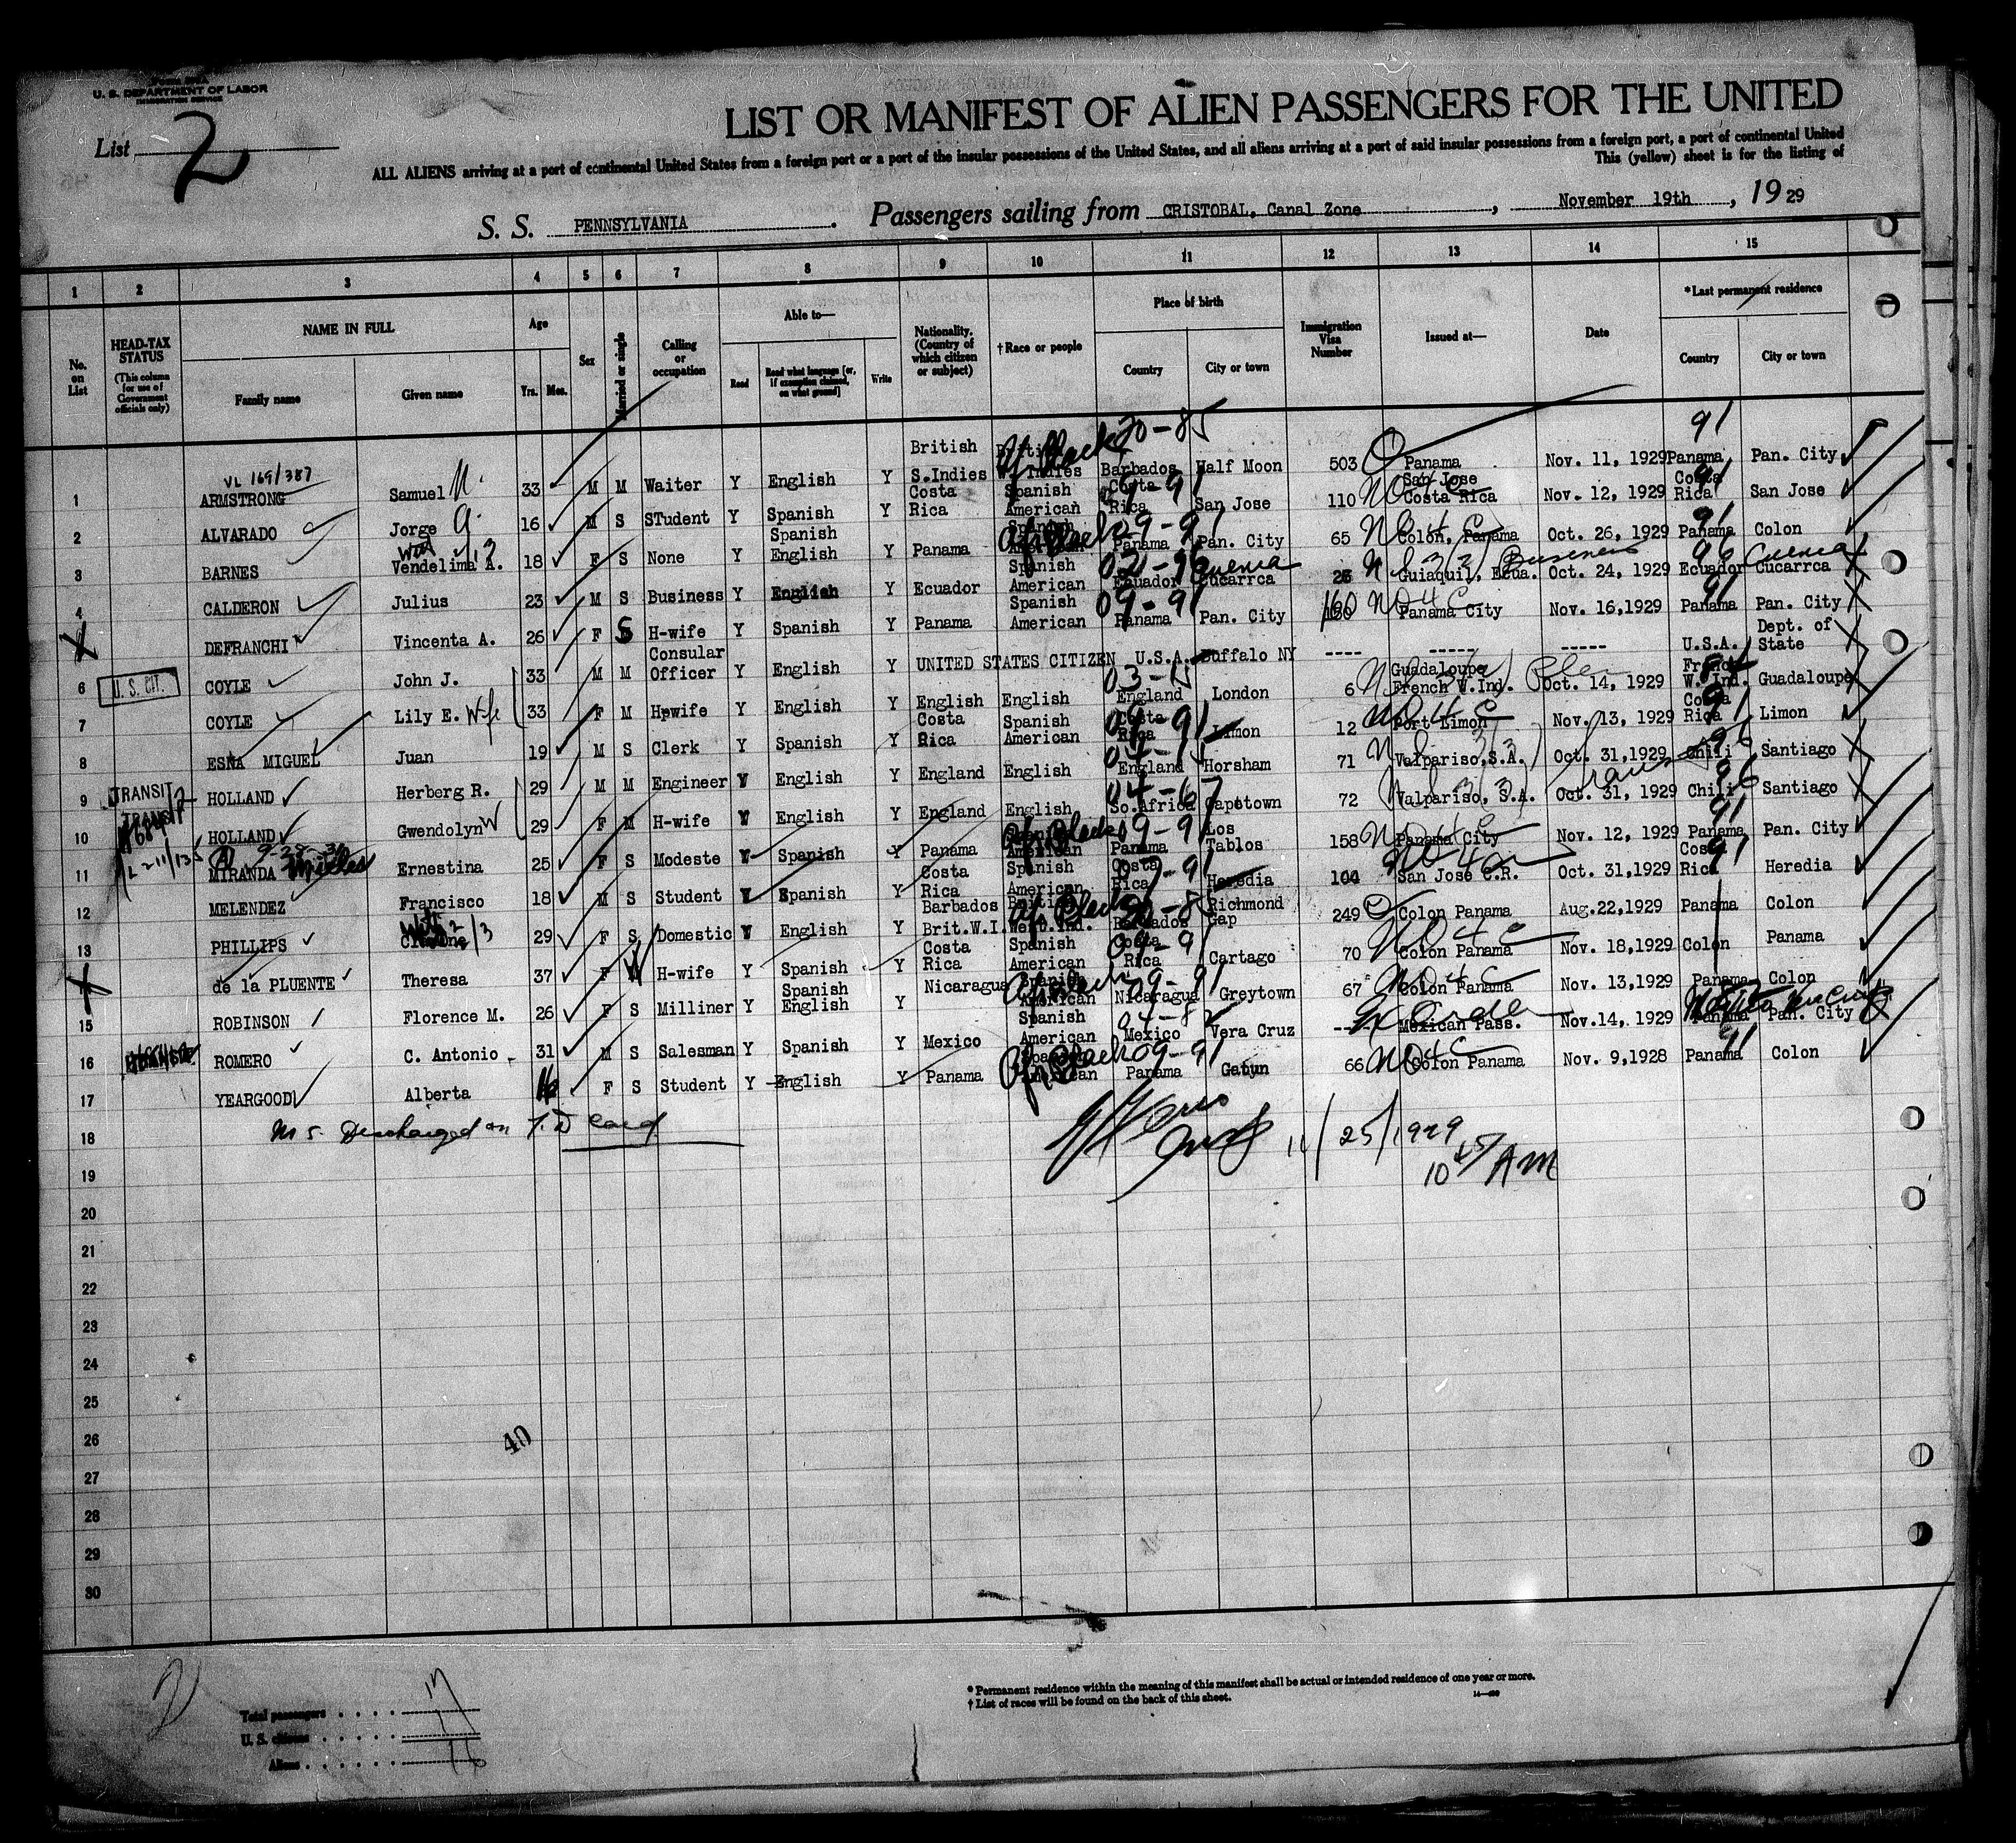 Form
U. S. DEPARTMENT OF LABOR
IMMIGRATION SERVICE
List 2
LIST OR MANIFEST OF ALIEN PASSENGERS FOR THE UNITED
ALL ALIENS arriving at a port of continental United States from a foreign port or a part of the insular possessions of the United States, and all aliens arriving at a port of said insular possessions from a foreign port, a part of continental United
This (yellow) sheet is for the listing of
S. S. PENNSYLVANIA. Passengers sailing from CRISTOBAL, Canal Zone, November 19th, 1929
1 2 3 4 5 6 7 8 9 10 11 12 13 14 15
No. on List
HEAD-TAX STATUS (This column for use of Government officials only)
NAME IN FULL Family name Given name
Age Yrs. Mos.
Sex
Married or single
Calling or occupation
Able to— Read Read what language [or, if exemption claimed, on what ground] Write
Nationality. (Country of which citizen or subject)
†Race or people
Place of birth Country City or town
Immigration Visa Number
Issued at—
Date
*Last permanent residence Country City or town
VL 169/387
1 ARMSTRONG Samuel N. 33 M M Waiter Y English Y British S.Indies W. Indies Af Black 20-85 Barbados Half Moon 503 Panama Nov. 11, 1929 Panama 91 Pan. City
2 ALVARADO Jorge G. 16 M S STudent Y Spanish Y Costa Rica Spanish American Costa Rica 09-91 San Jose 110 NO4C San Jose Costa Rica Nov. 12, 1929 Costa Rica 91 San Jose
3 BARNES Vendelima A. 18 F S None Y Spanish English Y Panama Spanish American Af Black 09-91 Panama Pan. City 65 NO4C Colon, Panama Oct. 26, 1929 Panama 91 Colon
4 CALDERON Julius 23 M S Business Y English Y Ecuador Spanish American Ecuador Cucarrca Cuenca Guiaquil, Ecua. Business Oct. 24, 1929 Ecuador 96 Cucarrca Cuenca
DEFRANCHI Vincenta A. 26 F S H-wife Y Spanish Y Panama Spanish American 09-91 Panama Pan. City 160 NO4C Panama City Nov. 16,1929 Panama 91 Pan. City
6 U. S. CIT. COYLE John J. 33 M M Consular Officer Y English Y UNITED STATES CITIZEN U.S.A. Buffalo NY ---- ----- ----- U.S.A. Dept. of State
7 COYLE Lily E. Wife 33 F M H-wife Y English Y English English 03-15 England London 6 Guadaloupe French W.Ind. Oct. 14, 1929 French W.Ind. Guadaloupe
8 ESNA MIGUEL Juan 19 M S Clerk Y Spanish Y Costa Rica Spanish American 09-91 Costa Rica Limon 12 NO4C Port Limon Nov. 13, 1929 Costa Rica 91 Limon
9 TRANSIT HOLLAND Herberg R. 29 M M Engineer Y English Y England English England Horsham 71 Valpariso,S.A. Oct. 31,1929 Chili Santiago
10 TRANSIT HOLLAND Gwendolyn W 29 F M H-wife Y English Y England English 04-67 So.Africa Capetown 72 Valpariso, S.A. Oct. 31, 1929 Chili 96 Santiago
9-28-36
11 MIRANDA Ernestina 25 F S Modeste Y Spanish Y Panama Af Black American 09-91 Panama Los Tablos 158 NO4C Panama City Nov. 12, 1929 Panama 91 Pan. City
12 MELENDEZ Francisco 18 M S Student Y Spanish Y Costa Rica Spanish American 09-91 Costa Rica Heredia 104 NO4C San Jose C.R. Oct. 31,1929 Costa Rica 91 Heredia
13 PHILLIPS 29 F S Domestic Y English Y Barbados Brit.W.I. West.Ind. Af Black Barbados Richmond Gap 249 Colon Panama Aug.22,1929 Panama Colon
de la PLUENTE Theresa 37 F W H-wife Y Spanish Y Costa Rica Spanish American 09-91 Costa Rica Cartago 70 NO4C Colon Panama Nov. 18,1929 Colon Panama
15 ROBINSON Florence M. 26 F S Milliner Y Spanish English Y Nicaragua Af Black American 09-91 Nicaragua Greytown 67 NO4C Colon Panama Nov. 13,1929 Panama Colon
16 ROMERO C. Antonio 31 M S Salesman Y Spanish Y Mexico Spanish American Mexico Vera Cruz ---- Mexican Pass. Nov.14, 1929 Panama Pan. City
17 YEARGOOD Alberta 16 F S Student Y English Y Panama Af Black American 09-91 Panama Gatun 66 NO4C Colon Panama Nov. 9,1928 Panama 91 Colon
18 Discharged on card
11/25/1929
19 10 45 AM
20
21
22
23
24
25
26
40
27
28
29
30
2
Total passengers . . . . 17
U. S. citizens . . . . . 1
Aliens . . . . . . 16
* Permanent residence within the meaning of this manifest shall be actual or intended residence of one year or more.
† List of races will be found on the back of this sheet.